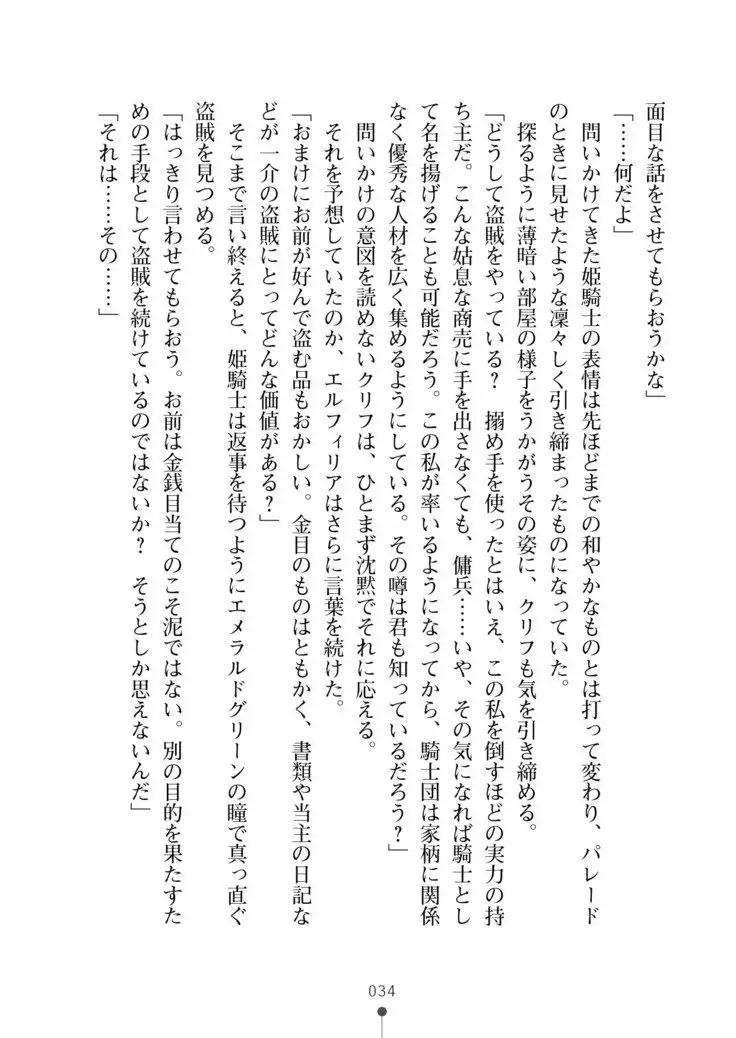 面目な話をさせてもらおうかな」
「……何だよ」
　問いかけてきた姫騎士の表情は先ほどまでの和やかなものとは打って変わり、パレード
のときに見せたような凜々しく引き締まったものになっていた。
　探るように薄暗い部屋の様子をうかがうその姿に、クリフも気を引き締める。
「どうして盗賊をやっている？　搦め手を使ったとはいえ、この私を倒すほどの実力の持
ち主だ。こんな姑息な商売に手を出さなくても、傭兵……いや、その気になれば騎士とし
て名を揚げることも可能だろう。この私が率いるようになってから、騎士団は家柄に関係
なく優秀な人材を広く集めるようにしている。その噂は君も知っているだろう？」
　問いかけの意図を読めないクリフは、ひとまず沈黙でそれに応える。
　それを予想していたのか、エルフィリアはさらに言葉を続けた。
「おまけにお前が好んで盗む品もおかしい。金目のものはともかく、書類や当主の日記な
どが一介の盗賊にとってどんな価値がある？」
　そこまで言い終えると、姫騎士は返事を待つようにエメラルドグリーンの瞳で真っ直ぐ
盗賊を見つめる。
「はっきり言わせてもらおう。お前は金銭目当てのこそ泥ではない。別の目的を果たすた
めの手段として盗賊を続けているのではないか？　そうとしか思えないんだ」
「それは……その……」
034